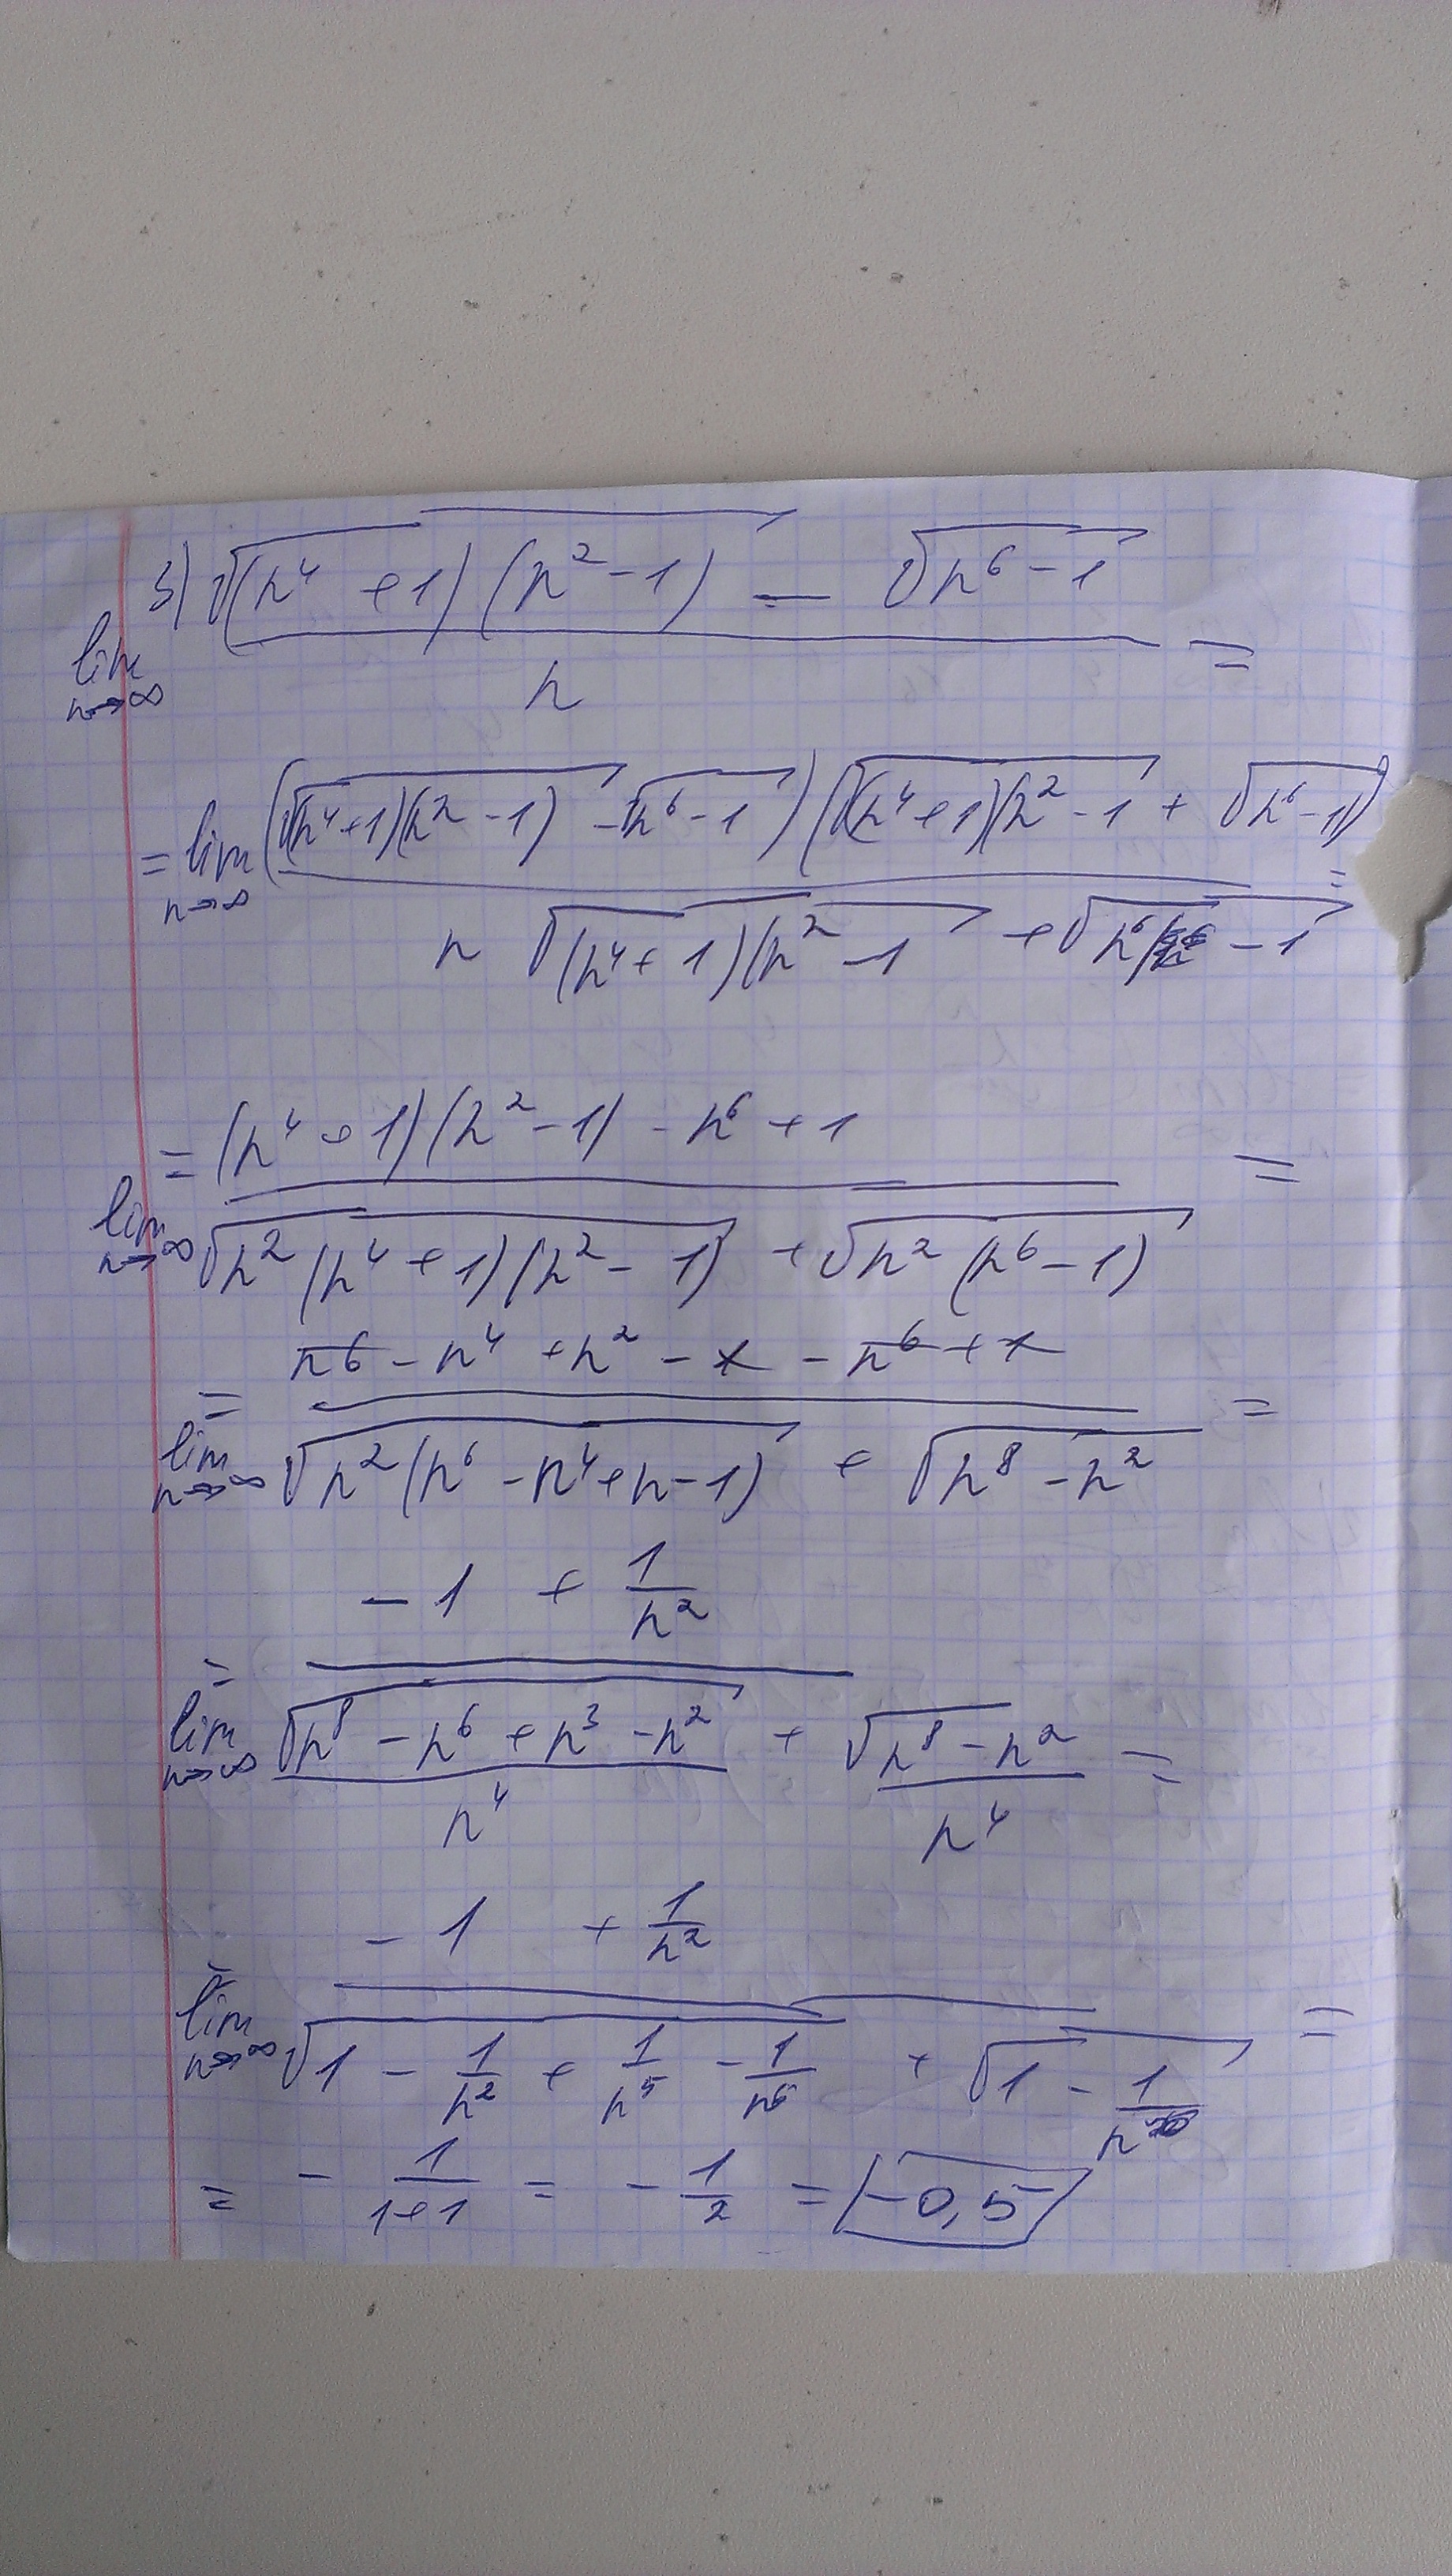 3) √(n⁴ + 1)(n² - 1) - √n⁶ - 1
lim n→∞ ――― =
n
= lim n→∞ (√(n⁴+1)(n² - 1) - √n⁶ - 1)(√(n⁴+1)(n² - 1 + √n⁶ - 1) =
n √(n⁴ + 1)(n² - 1 + √n⁶ - 1
= (n⁴ + 1)(n² - 1) - n⁶ + 1 =
lim n→∞ √n²(n⁴ + 1)(n² - 1) + √n²(n⁶ - 1)
n6 - n⁴ + n² - 1 - n⁶ + 1
= =
lim n→∞ √n²(n⁶ - n⁴ + n - 1) + √n⁸ - n²
- 1 + 1/n²
=
lim n→∞ √n⁸ - n⁶ + n³ - n² / n⁴ + √n⁸ - n² / n⁴ =
- 1 + 1/n²
= =
lim n→∞ √1 - 1/n² + 1/n⁵ - 1/n⁶ + √1 - 1/n
= - 1/1+1 = - 1/2 = -0,5